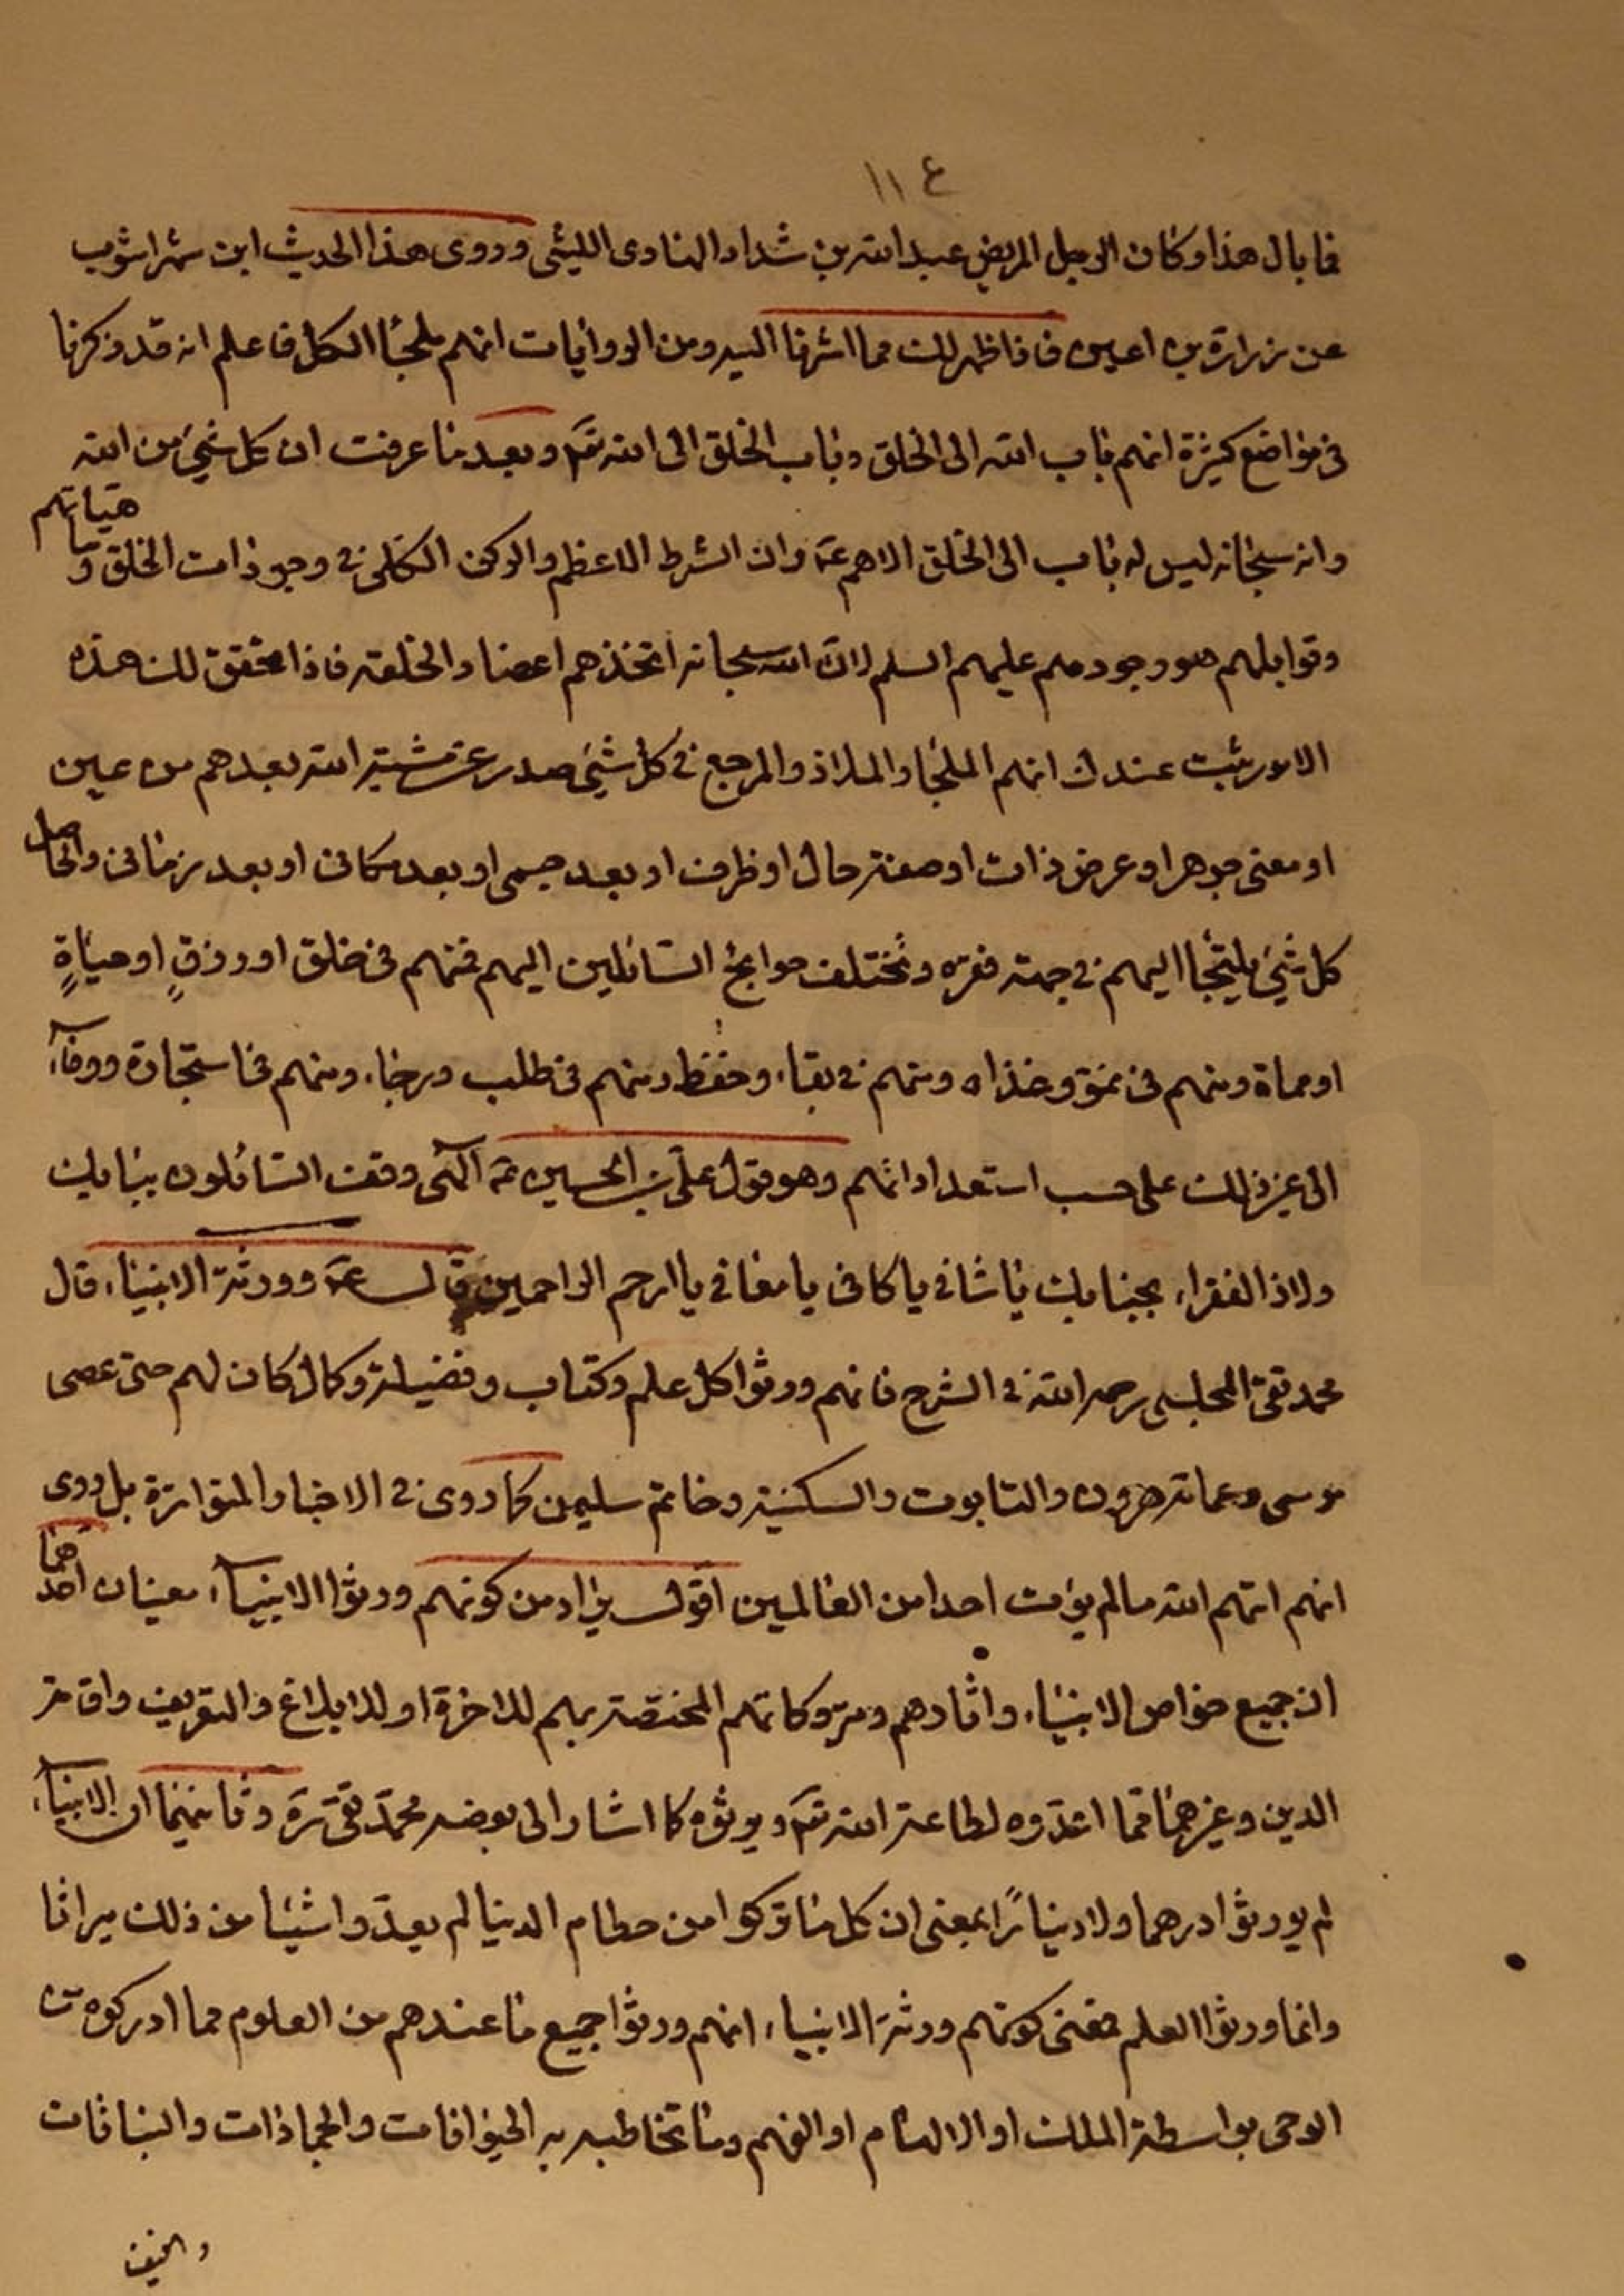 ١١٤
فما بال هذا وكان الرجل المريض عبد الله بن شداد الهادى الليثى وروى هذا الحديث ابن شهراشوب
عن زرارة بن اعين فاذا ظهر لك مما اشرنا اليه ومن الروايات انهم ملجأ الكل فاعلم انه قد ذكرنا
فى مواضع كثيرة انهم باب الله الى الخلق وباب الخلق الى الله تع وبعد ما عرفت ان كل شىء من الله
وانه سبحانه ليس له باب الى الخلق الا هم ع وان الشرط الاعظم والركن الكلى فى وجود ذات الخلق و هيئاتهم
وقوابلهم هو وجودهم عليهم السلم لان الله سبحانه اتخذهم اعضادا لخلقه فاذا تحقق لك هذه
الامور ثبت عندك انهم الملجأ والملاذ والمرجع فى كل شىء صدر عن مشية الله بعدهم من عين
او معنى جوهر او عرض ذات او صفة حال او ظرف او بعد جسمى او بعد مكانى او بعد زمانى والحاصل
كل شىء يلتجأ اليهم فى جهة فقره وتختلف حوائج السائلين اليهم فمنهم فى خلق او رزقٍ او حياةٍ
او مماة ومنهم فى نمو وغذاء ومنهم فى بقاء وحفظ ومنهم فى طلب ورجاء ومنهم فى استجارة ووفاء
الى غير ذلك على حسب استعداداتهم وهو قول على بن الحسين ع الهى وقف السائلون ببابك
ولاذ الفقراء بجنابك يا شافى يا كافى يا معافى يا ارحم الراحمين قال ع وورثة الانبياء قال
محمد تقى المجلسى رحمه الله فى الشرح فانهم ورثوا كل علم وكتاب وفضيلة وكمال كان لهم حتى عصى
موسى وعمامة هرون والتابوت والسكينة وخاتم سليمن كما روى فى الاخبار المتواترة بل روى
انهم اتيهم الله ما لم يؤت احدا من العالمين اقول يراد من كونهم ورثوا الانبياء معنيان احدهما
ان جميع خواص الانبياء واثارهم ومتروكاتهم المختصة بهم للاخرة او للابلاغ والتعريف واقامة
الدين وغيرهما مما اعدوه لطاعة الله تع ويرثوه كما اشار الى بعضه محمد تقى ره وثانيهما ان الانبياء
لم يورثوا درهما ولا دينارًا بمعنى ان كل ما تركوا من حطام الدنيا لم يعدوا شيئا من ذلك ميراثا
وانما ورثوا العلم فمعنى كونهم ورثة الانبياء انهم ورثوا جميع ما عندهم من العلوم مما ادركوه من
الوحى بواسطة الملك او الالهام او الفهم وما تخاطب به الحيوانات والجمادات والنباتات